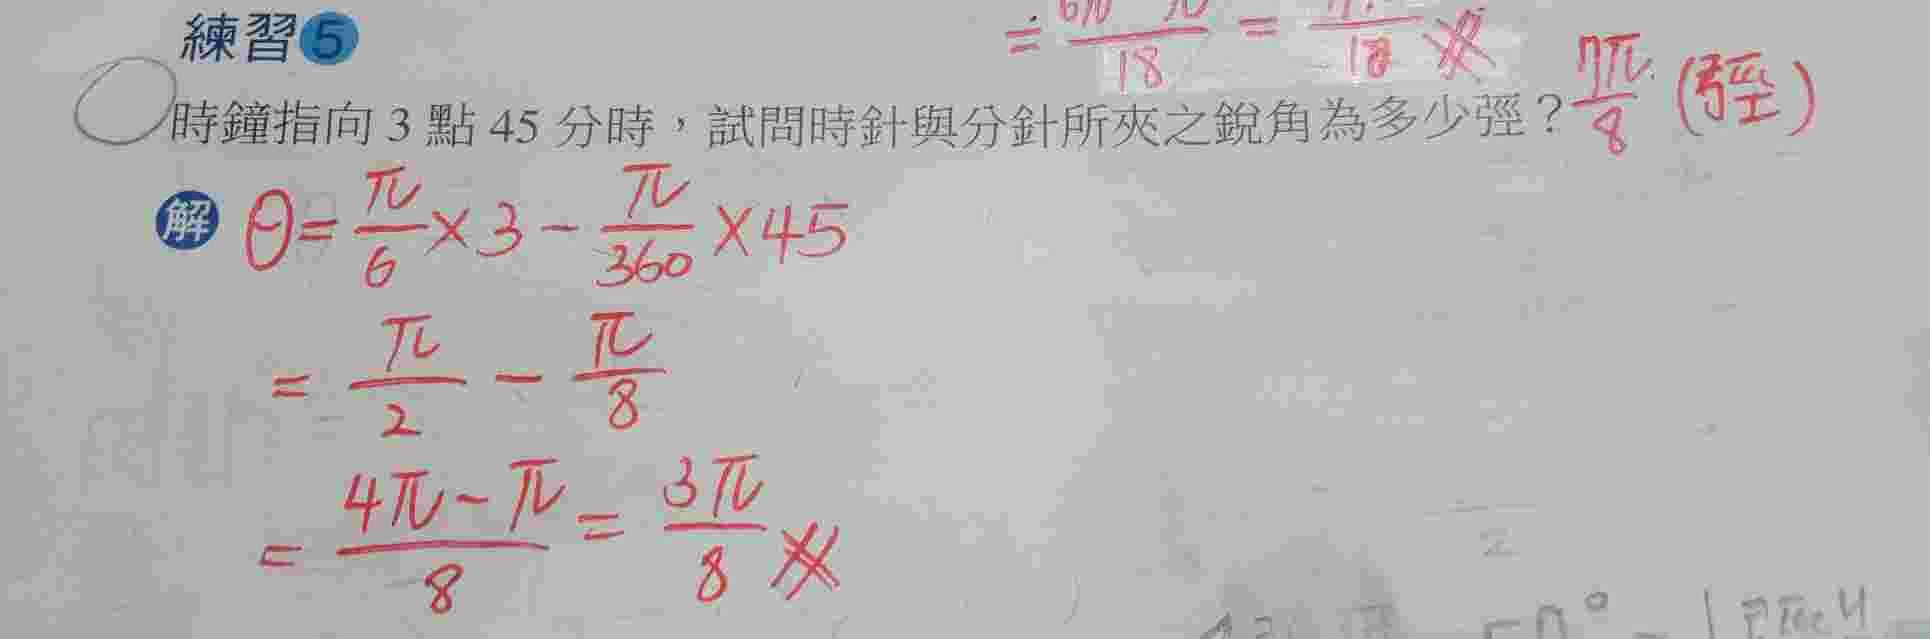 練習5
= 18 = 18
時鐘指向 3 點 45 分時,試問時針與分針所夾之銳角為多少弳? 7π/8 (弳)
解 θ = π/6 × 3 - π/360 × 45
= π/2 - π/8
= 4π-π/8 = 3π/8